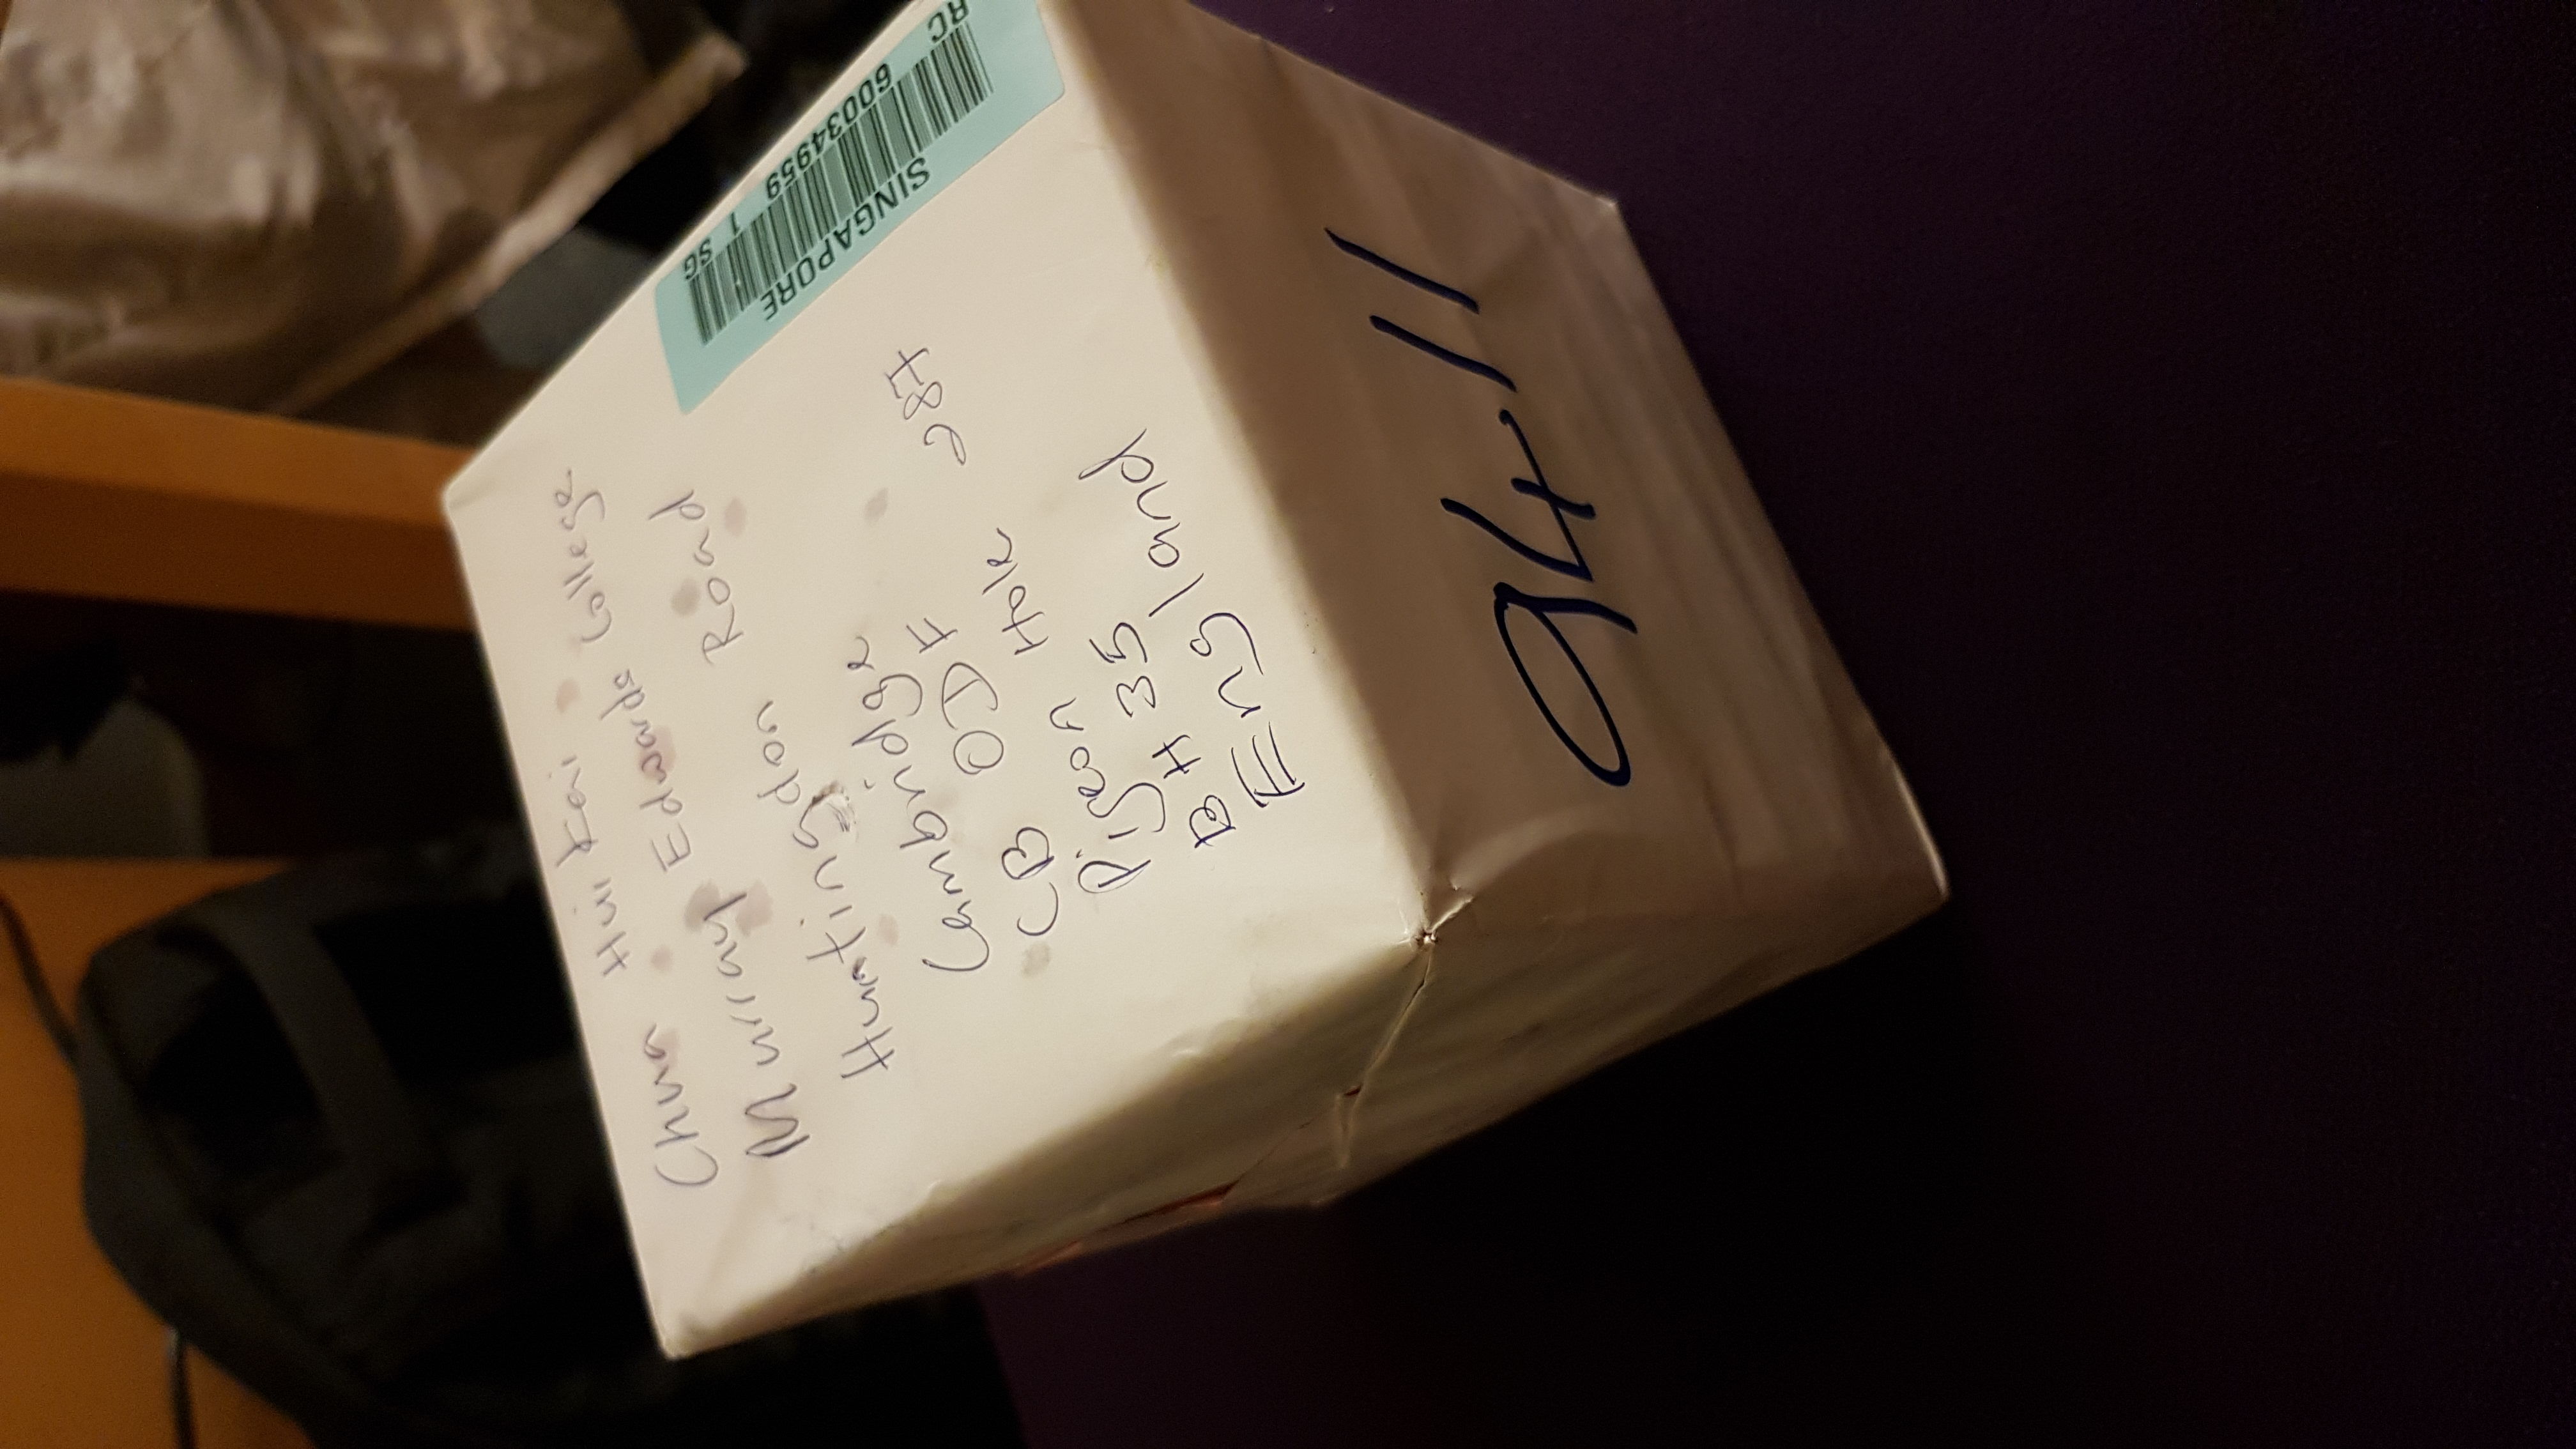 Chua Hui Kai
Murray Edwards College
Huntingdon Road
Cambridge
CB ODF
Pigeon Hole 287
BH 35
England
SINGAPORE
RC 60034959 1 SG
9411